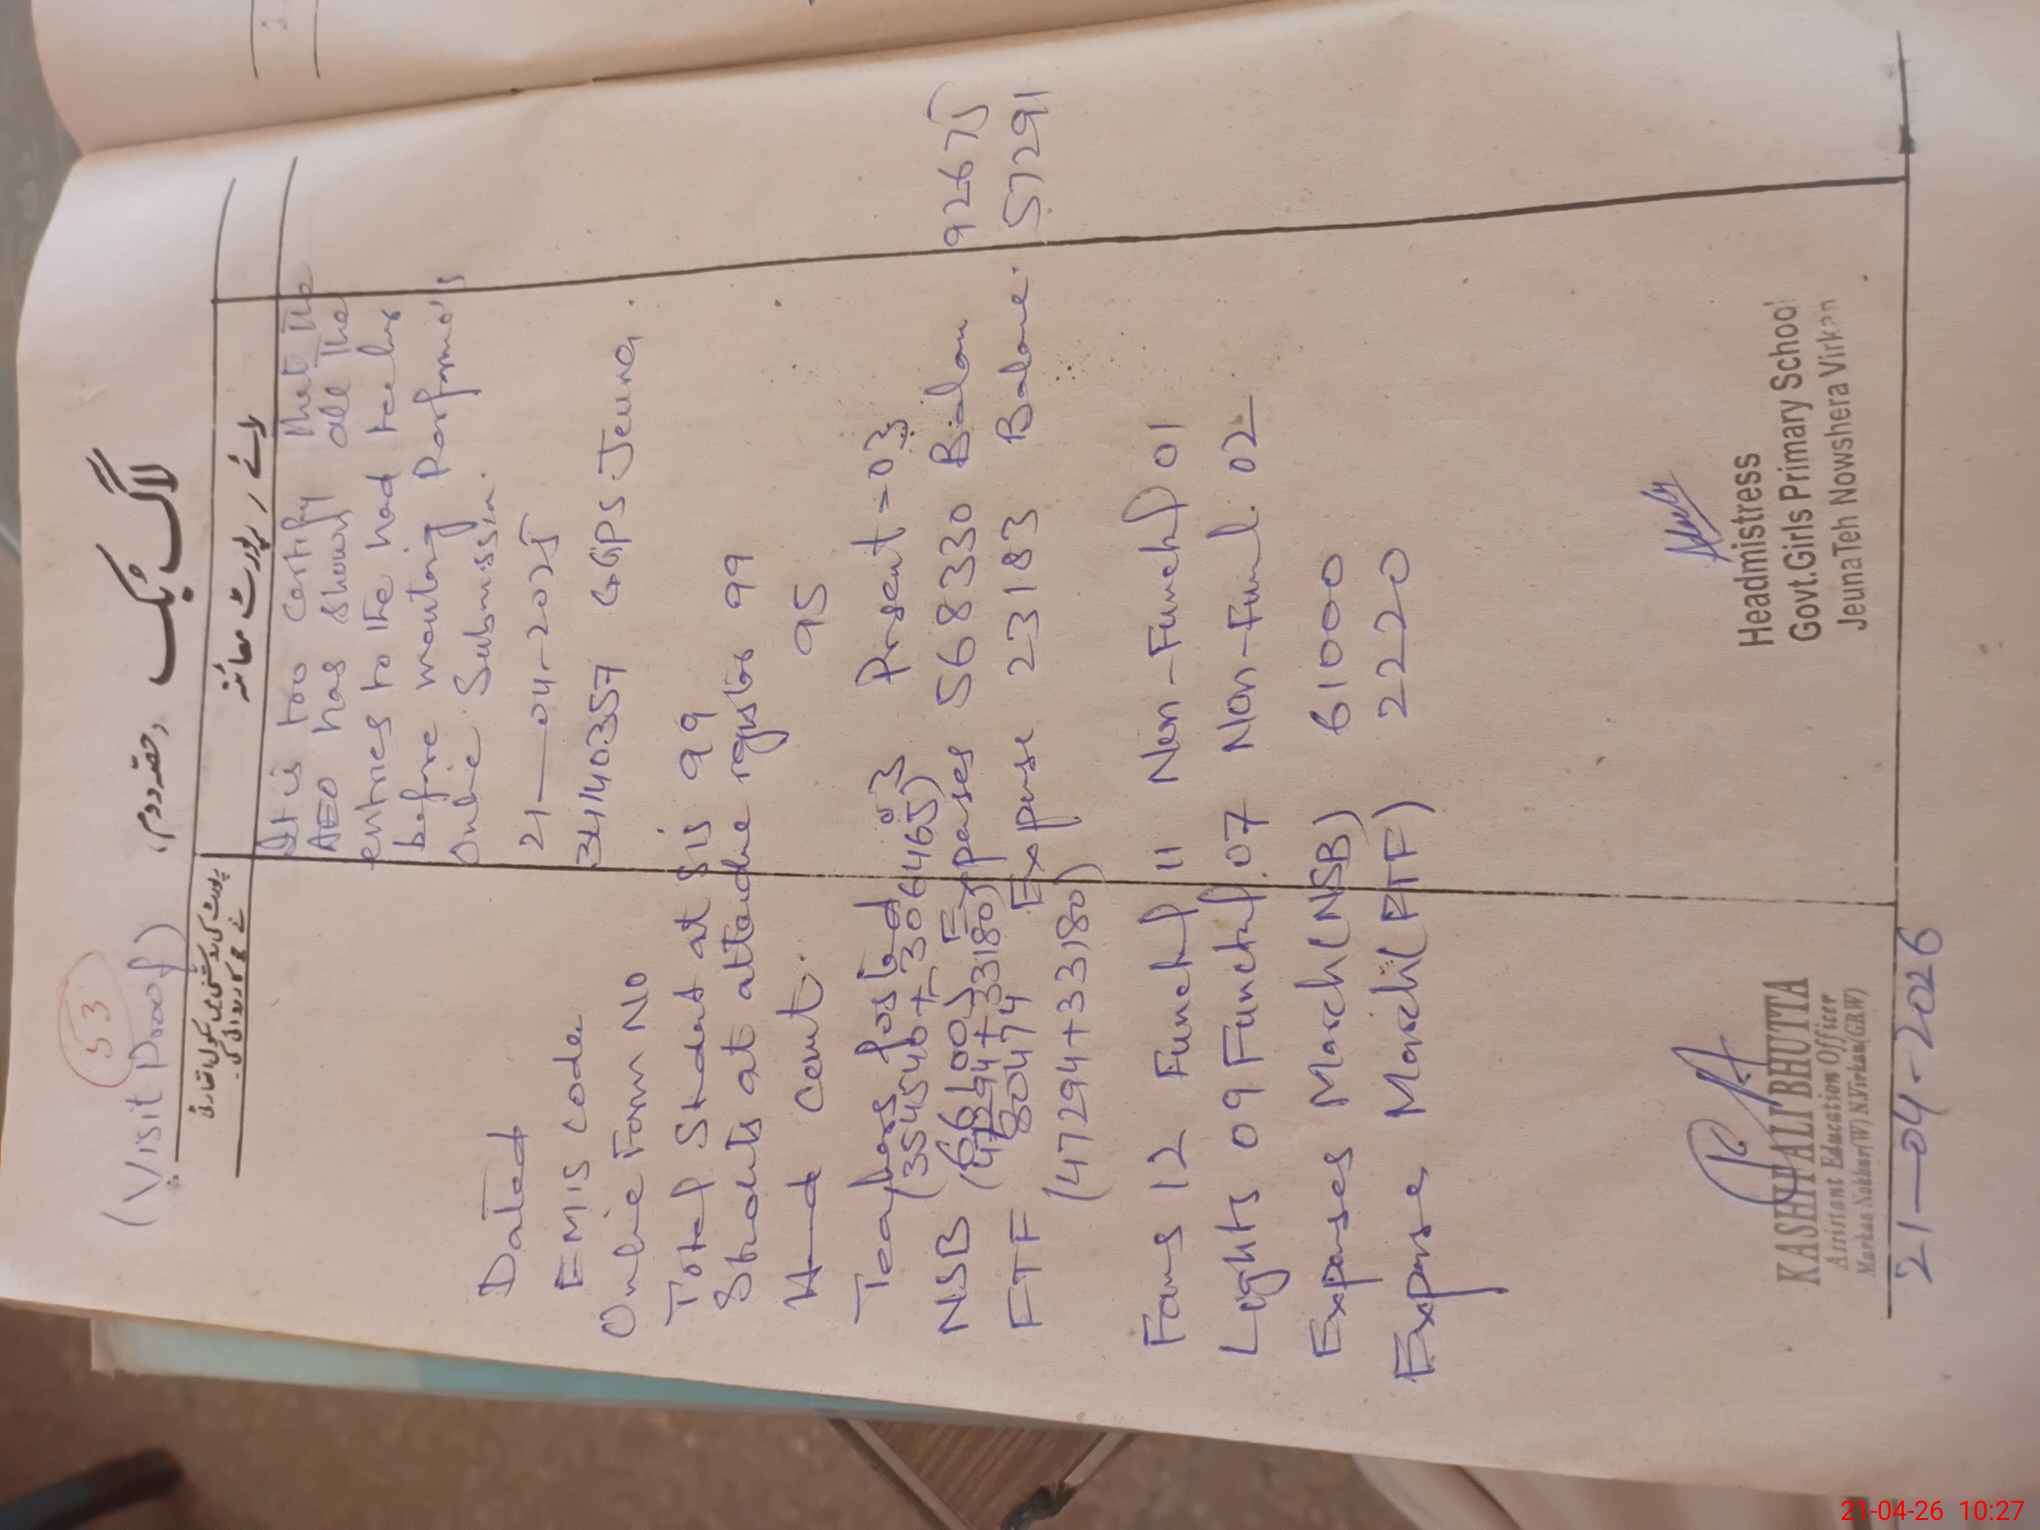 53
(Visit Proof)
لاگ بُک (حصہ دوم)
رائے / رپورٹ معائنہ
رپورٹ کی روشنی میں سکول اتھارٹی نے جو کاروائی کی۔
It is too certify that the
AEO has shown all the
entries to the head teacher
before marking Performa's
Online Submission.
Dated 21—04-2025
EMIS code 34140357 GGPS Jeuna.
Online Form No
Total Student at SIS 99
Students at attendance register 99
Head Count. 95
Teachers Posted 03 Present = 03
(354546 + 306465)
NSB (661001) Expenses 568330 Balan 92675
(47294+33180)
FTF 80474 Expense 23183 Balance. 57291
(47294+33180)
Fans 12 Functnl 11 Non-Functnl 01
Lights 09 Functnl. 07 Non-Funl. 02
Expenses March (NSB) 61000
Expense March (FTF) 2220
Headmistress
Govt.Girls Primary School
Jeuna Teh Nowshera Virkan
KASHIF ALI BHUTTA
Assistant Education Officer
Markaz Nokhar(W) N.Virkan(GRW)
21—04-2026
21-04-26 10:27